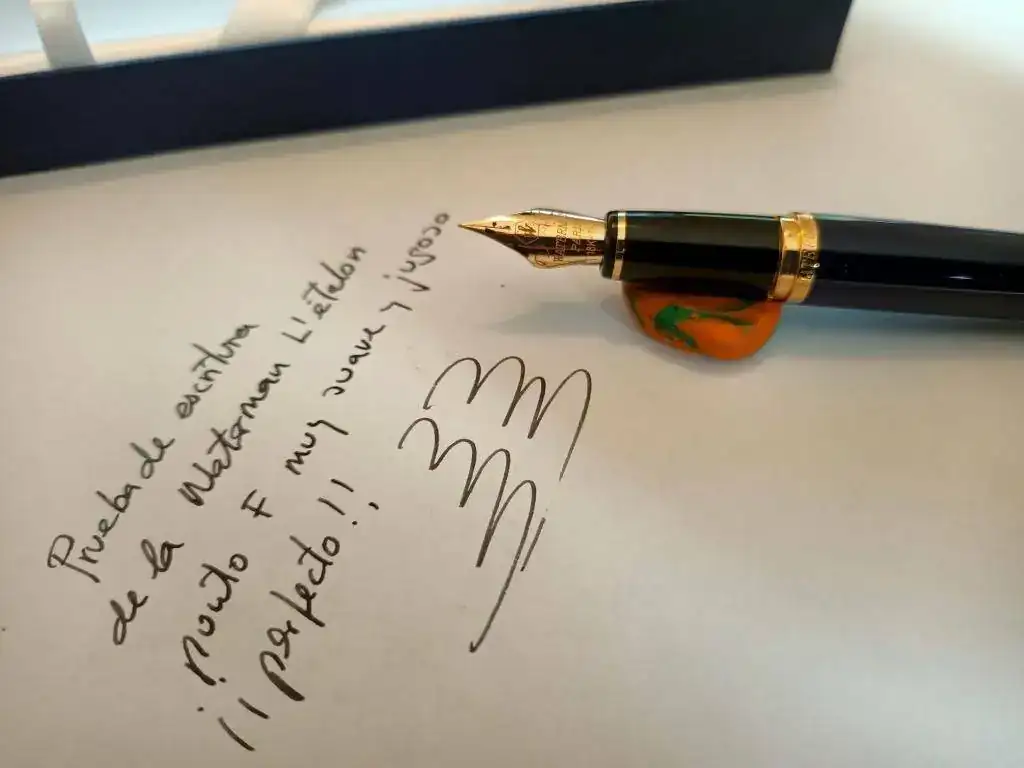 Prueba de escritura
de la Waterman L'étalon
punto F muy suave y jugoso
¡¡perfecto!!
WATERMAN
PARIS
18K